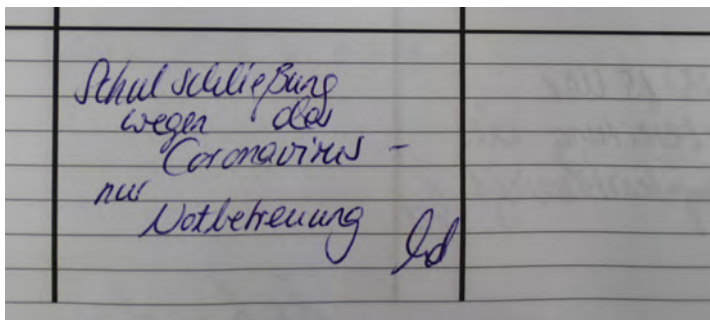 Schulschließung
wegen des
Coronavirus -
nur
Notbetreuung